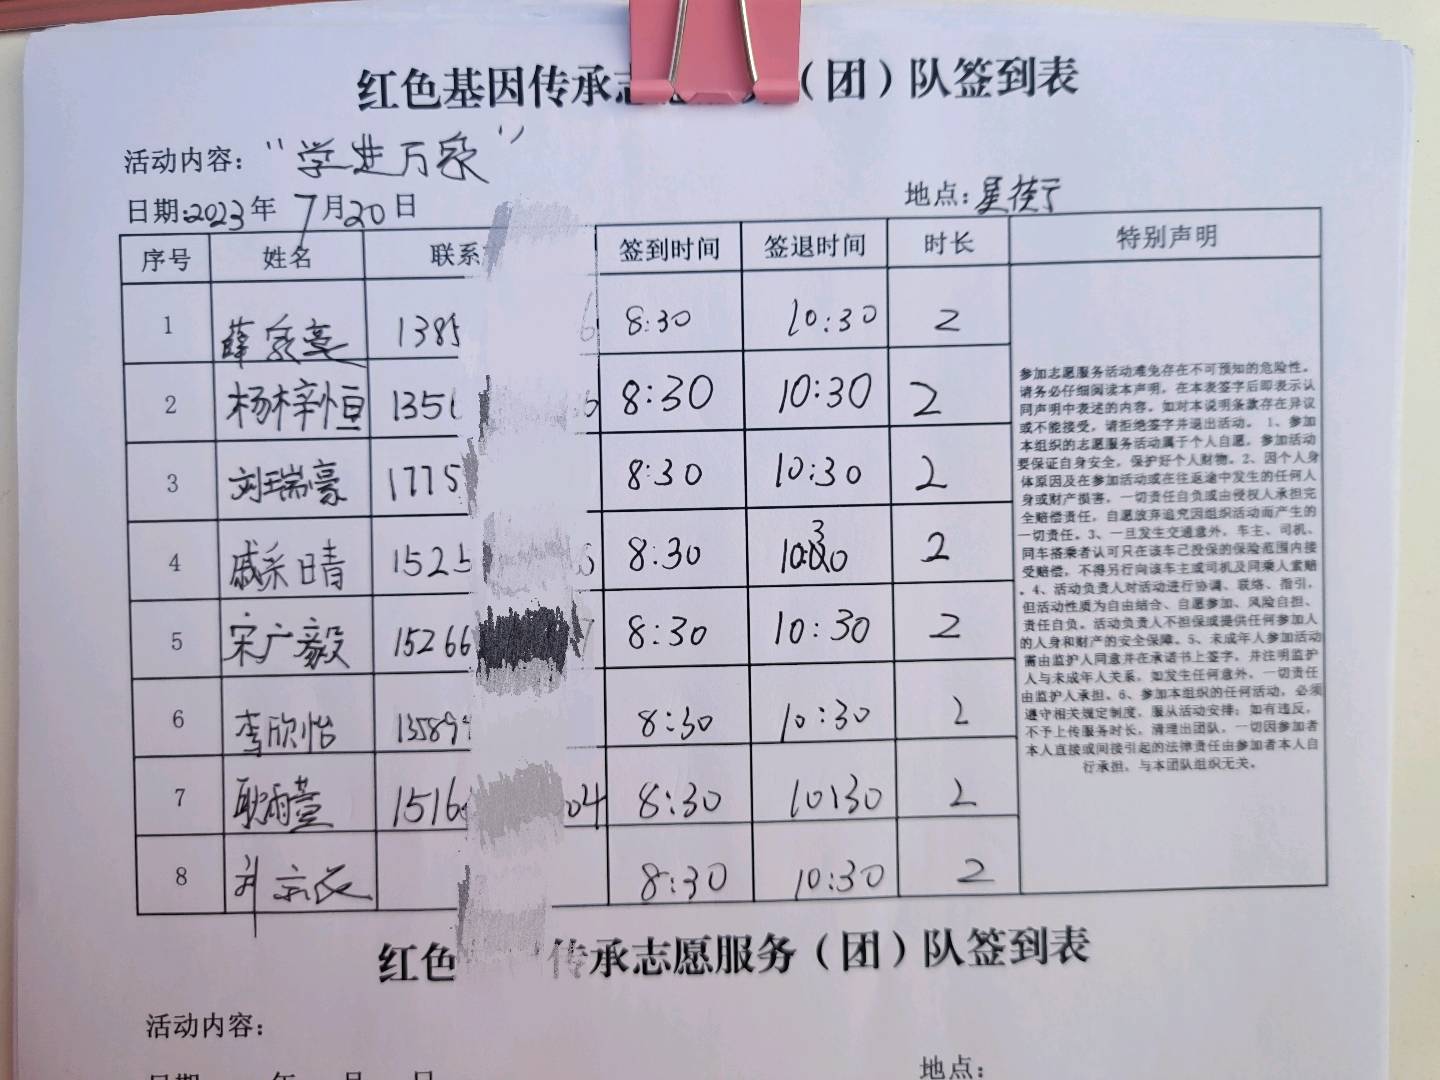 红色基因传承志（团）队签到表
活动内容：“学进万家”
日期：2023年7月20日 地点：星街
序号 姓名 联系 签到时间 签退时间 时长 特别声明
1 薛 1385 6 8:30 10:30 2
2 杨梓恒 1356 6 8:30 10:30 2
3 刘瑞豪 1775 8:30 10:30 2
4 戚采晴 1525 8:30 10:30 2
5 宋广毅 15266 7 8:30 10:30 2
6 李欣怡 13589 8:30 10:30 2
7 耿雨萱 1516 04 8:30 10:30 2
8 8:30 10:30 2
参加志愿服务活动难免存在不可预知的危险性。
请务必仔细阅读本声明，在本表签字后即表示认
同声明中表述的内容。如对本说明条款存在异议
或不能接受，请拒绝签字并退出活动。 1、参加
本组织的志愿服务活动属于个人自愿，参加活动
要保证自身安全，保护好个人财物。2、因个人身
体原因及在参加活动或在往返途中发生的任何人
身或财产损害，一切责任自负或由侵权人承担完
全赔偿责任，自愿放弃追究因组织活动而产生的
一切责任。3、一旦发生交通意外，车主、司机、
同车搭乘者认可只在该车已投保的保险范围内接
受赔偿，不得另行向该车主或司机及同乘人索赔
。4、活动负责人对活动进行协调、联络、指引，
但活动性质为自由结合、自愿参加、风险自担、
责任自负。活动负责人不担保或提供任何参加人
的人身和财产的安全保障。5、未成年人参加活动
需由监护人同意并在承诺书上签字，并注明监护
人与未成年人关系，如发生任何意外，一切责任
由监护人承担。6、参加本组织的任何活动，必须
遵守相关规定制度，服从活动安排；如有违反，
不予上传服务时长，清理出团队，一切因参加者
本人直接或间接引起的法律责任由参加者本人自
行承担，与本团队组织无关。
红色传承志愿服务（团）队签到表
活动内容：
日期 年 月 日 地点：